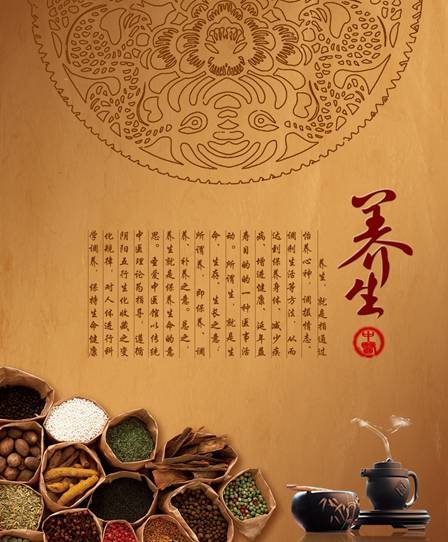 养生
中医
养生，就是指通过
怡养心神、调摄情志、
调剂生活等方法，从而
达到保养身体、减少疾
病、增进健康、延年益
寿目的的一种医事活
动。所谓生，就是生
命、生存、生长之意；
所谓养，即保养、调
养、补养之意。总之，
养生就是保养生命的意
思。圣爱中医馆以传统
中医理论为指导，遵循
阴阳五行生化收藏之变
化规律，对人体进行科
学调养，保持生命健康